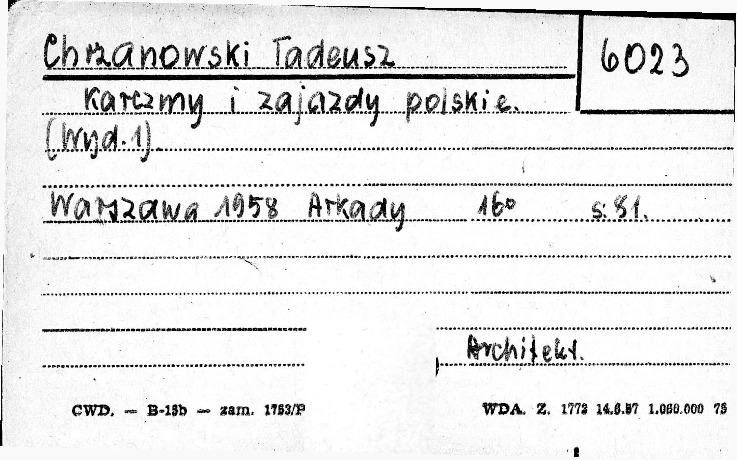 Chrzanowski Tadeusz
6023
Karczmy i zajazdy polskie.
(Wyd. 1).
Warszawa 1958 Arkady 16° s. 81.
Architekt.
CWD. — B-15b — zam. 1753/P
WDA. Z. 1773 14.6.57 1.000.000 75